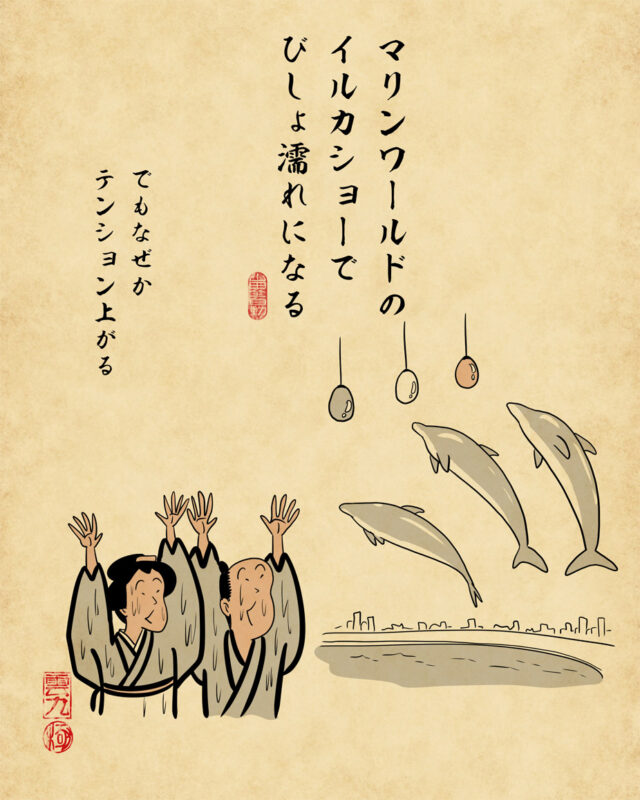 マリンワールドの
イルカショーで
びしょ濡れになる
でもなぜか
テンション上がる